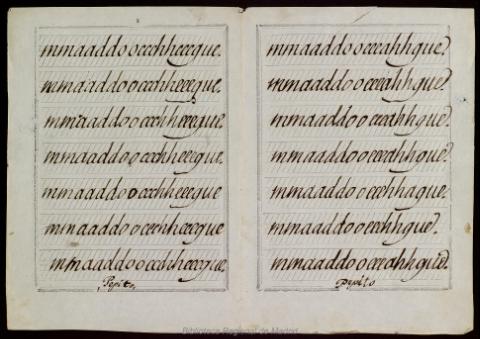 mmaaddo o ecchheeeque.
mmaaddo o ecchheeeque.
mmaaddo o ecchheeeque.
mmaaddo o ecchheeeque.
mmaaddo o ecchheeeque
mmaaddo o ecchheeeque
mmaaddo o ecchheeeque.
Pepito,
mmaaddo o eeeahhque?
mmaaddo o eeeahhque?
mmaaddo o eeeahhque?
mmaaddo o eeeahhque?
mmaaddo o eeehhaque.
mmaaddo o eeehhque?
mmaaddo o eeeahhque?
Pepito
Biblioteca Regional de Madrid